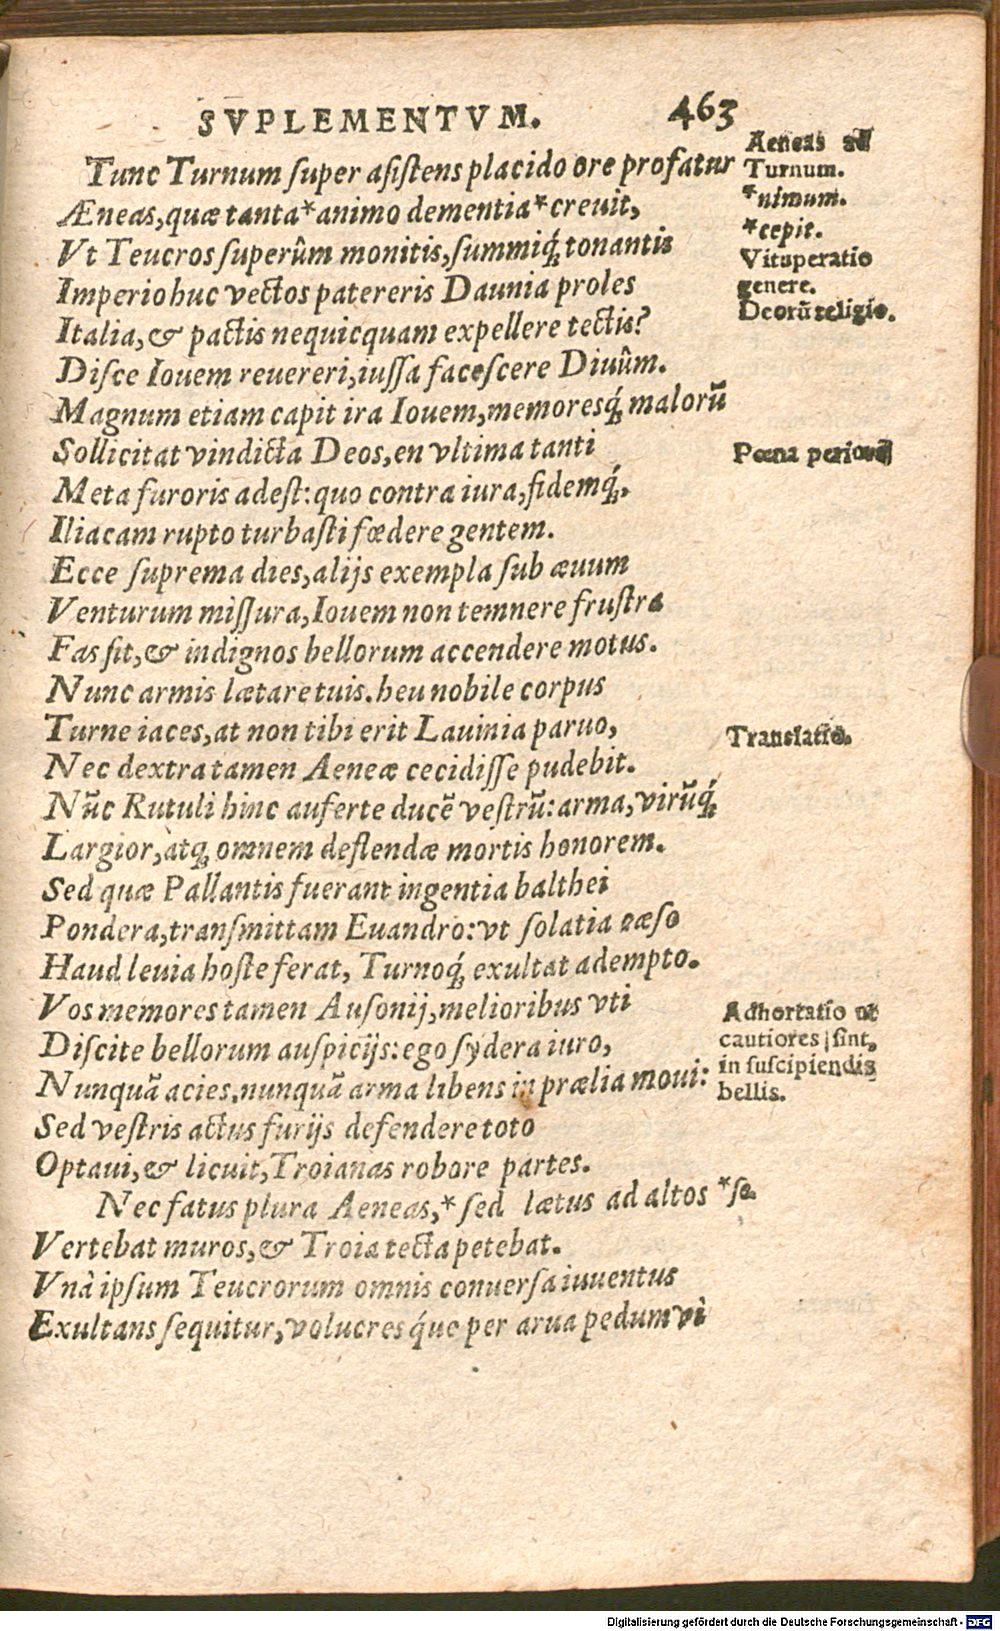 SVPLEMENTVM. 463
Tunc Turnum super asistens placido ore profatur
Æneas, quæ tanta*animo dementia*creuit,
Vt Teucros superûm monitis, summiq́; tonantis
Imperio huc vectos patereris Daunia proles
Italia, & pactis nequicquam expellere tectis?
Disce Iouem reuereri, iussa facescere Diuûm.
Magnum etiam capit ira Iouem, memoresq́; malorũ
Sollicitat vindicta Deos, en vltima tanti
Meta furoris adest: quo contra iura, fidemq́;,
Iliacam rupto turbasti fœdere gentem.
Ecce suprema dies, alijs exempla sub æuum
Venturum missura, Iouem non temnere frustra
Fas sit, & indignos bellorum accendere motus.
Nunc armis lætare tuis. heu nobile corpus
Turne iaces, at non tibi erit Lauinia paruo,
Nec dextra tamen Aeneæ cecidisse pudebit.
Nũc Rutuli hinc auferte ducẽ vestrũ: arma, virũq́;
Largior, atq; omnem deflendæ mortis honorem.
Sed quæ Pallantis fuerant ingentia balthei
Pondera, transmittam Euandro: vt solatia cæso
Haud leuia hoste ferat, Turnoq́; exultat adempto.
Vos memores tamen Ausonij, melioribus vti
Discite bellorum auspicijs: ego sydera iuro,
Nunquã acies, nunquã arma libens in prælia moui:
Sed vestris actus furijs defendere toto
Optaui, & licuit, Troianas robore partes.
Nec fatus plura Aeneas,* sed lætus ad altos *se.
Vertebat muros, & Troia tecta petebat.
Vnà ipsum Teucrorum omnis conuersa iuuentus
Exultans sequitur, volucres q́ue per arua pedum vì
Aeneas ad
Turnum.
*nimum.
*cepit.
Vituperatio
genere.
Deorũ religio.
Pœna
Translatio.
Adhortatio ut
cautiores sint,
in suscipiendis
bellis.
Digitalisierung gefördert durch die Deutsche Forschungsgemeinschaft - DFG